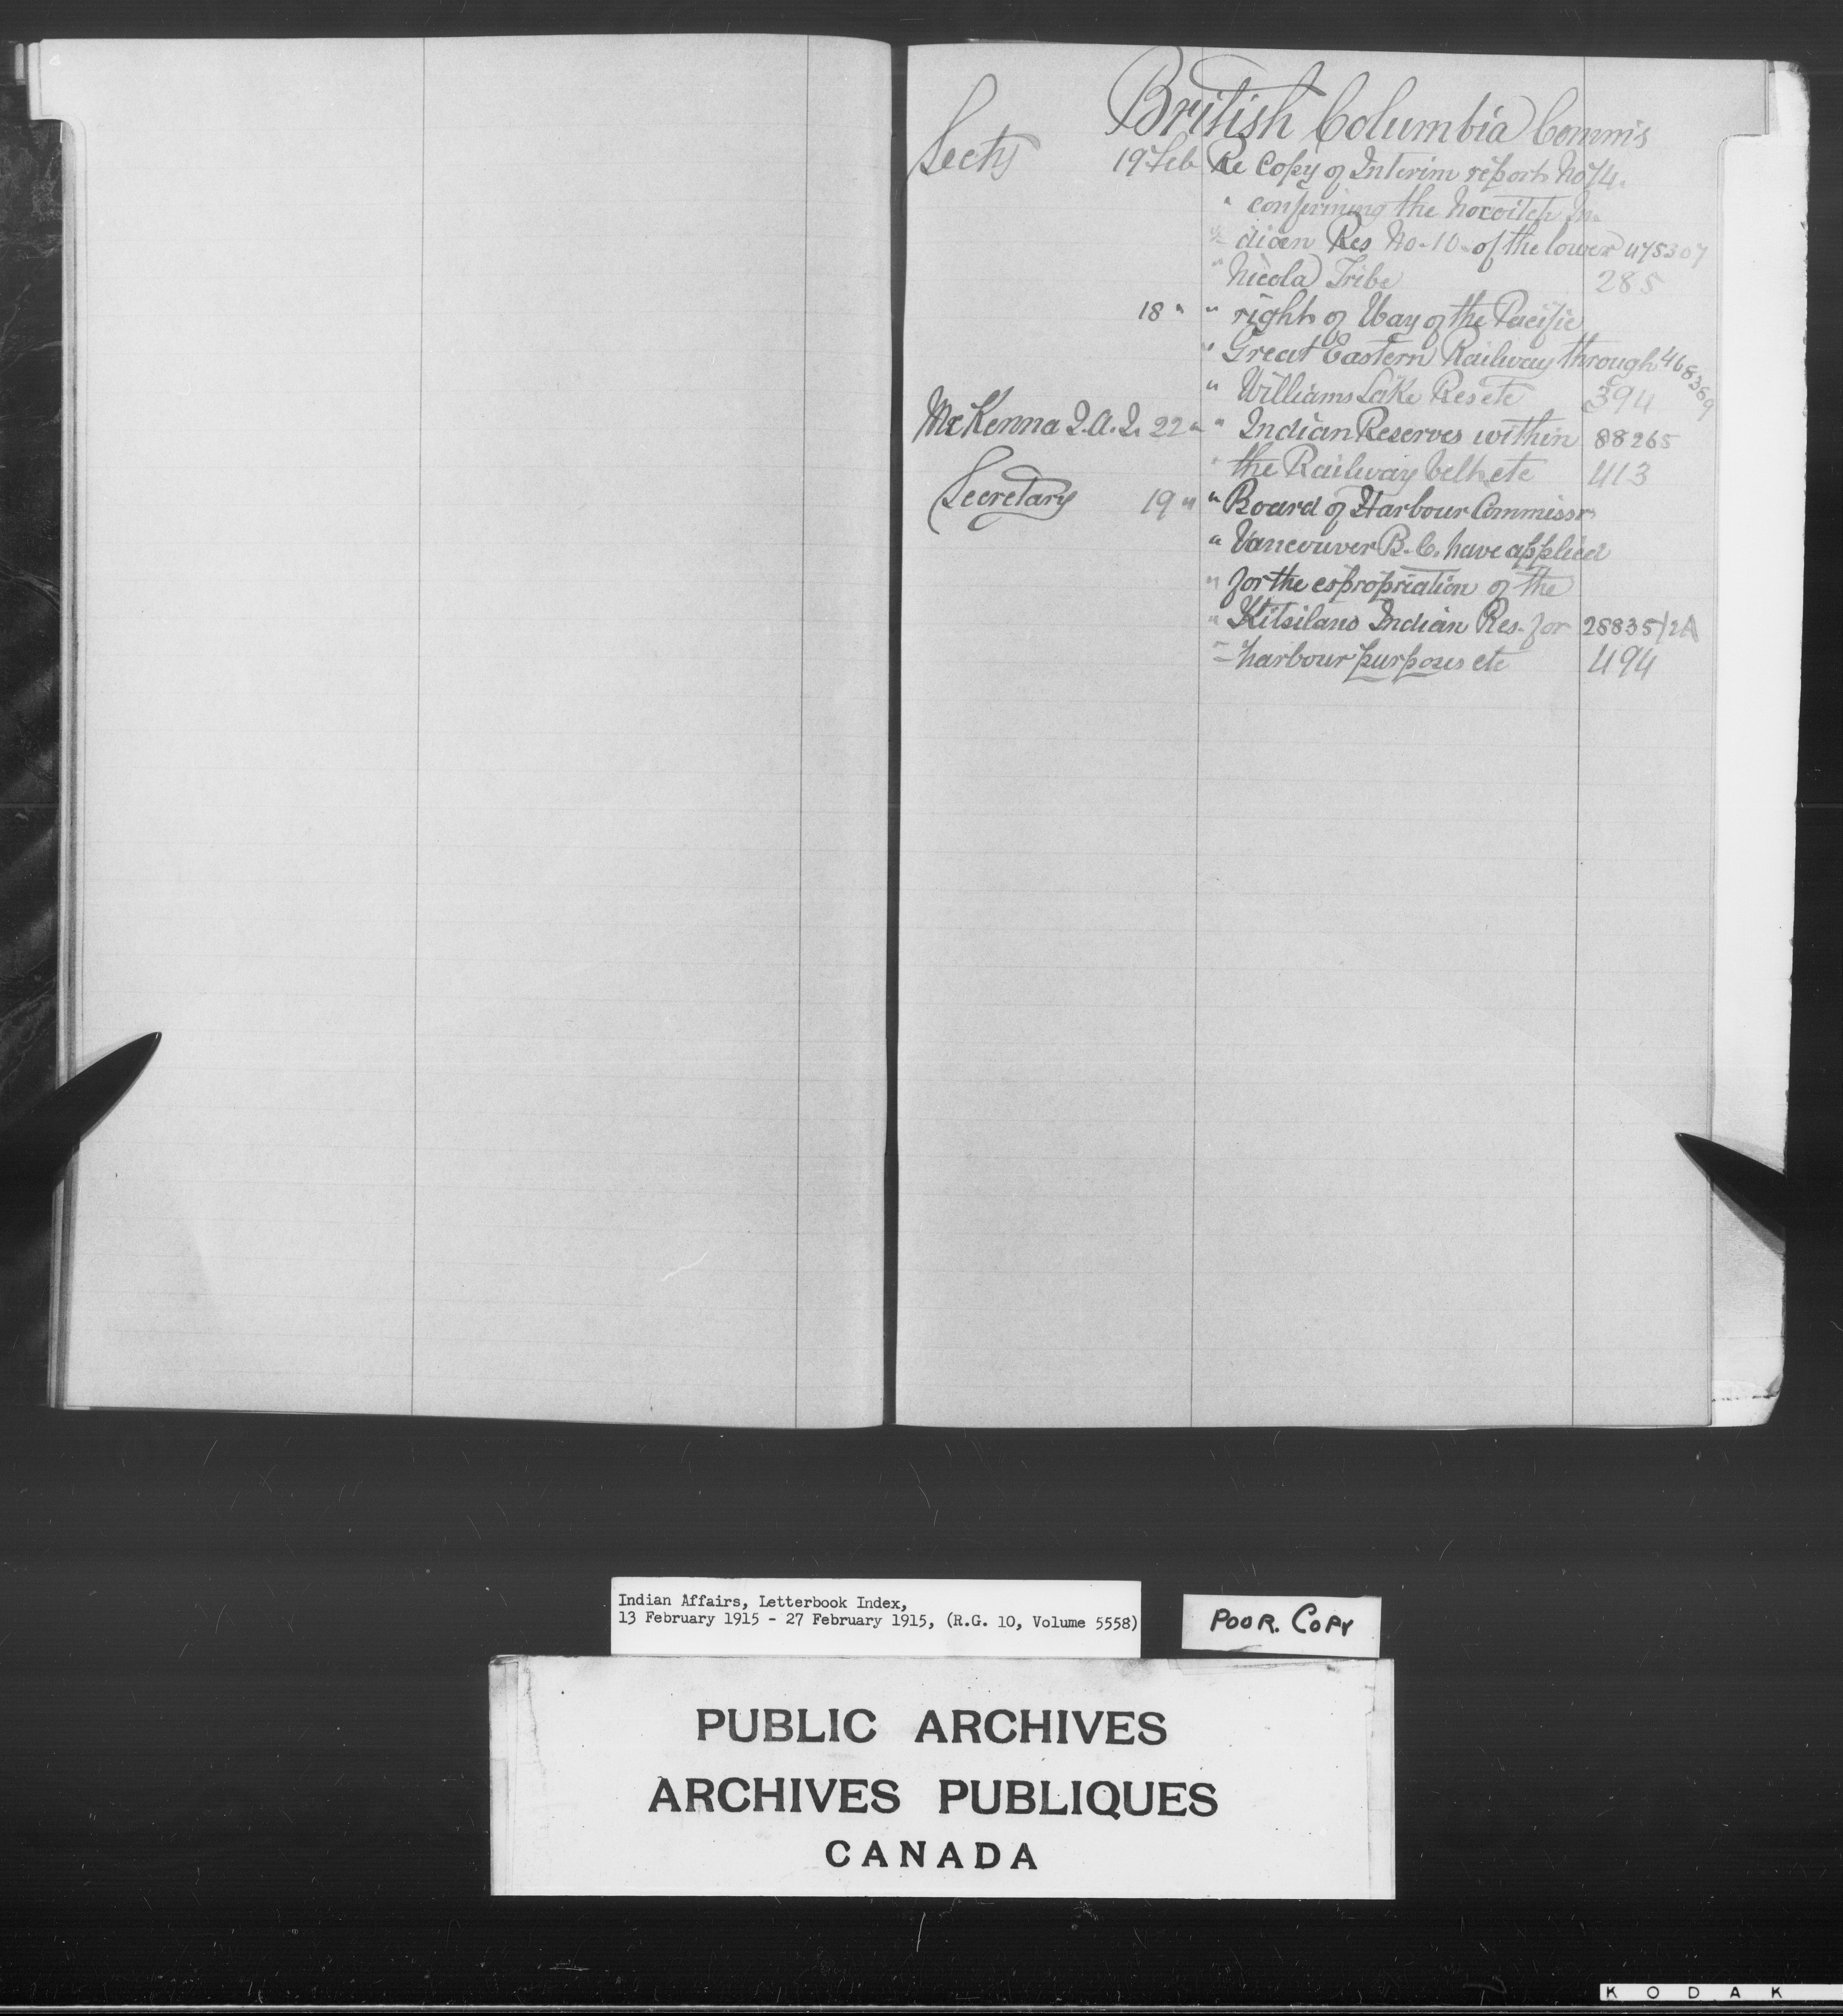 British Columbia Commis
Secty 19 Feb Re Copy of Interim report No 74.
" confirming the Nooaitch In-
" dian Res No-10- of the lower 475307
" Nicola Tribe 285
18 " " right of Way of the Pacific
" Great Eastern Railway through 468369
" Williams Lake Res etc 394
McKenna J.A.J. 22 " " Indian Reserves within 88265
" the Railway belt etc 413
Secretary 19 " " Board of Harbour Commissr
" Vancouver B.C. have applied
" for the expropriation of the
" Kitsilano Indian Res. for 28835/2A
" harbour purposes etc 494
Indian Affairs, Letterbook Index,
13 February 1915 - 27 February 1915, (R.G. 10, Volume 5558)
POOR. COPY
PUBLIC ARCHIVES
ARCHIVES PUBLIQUES
CANADA
KODAK